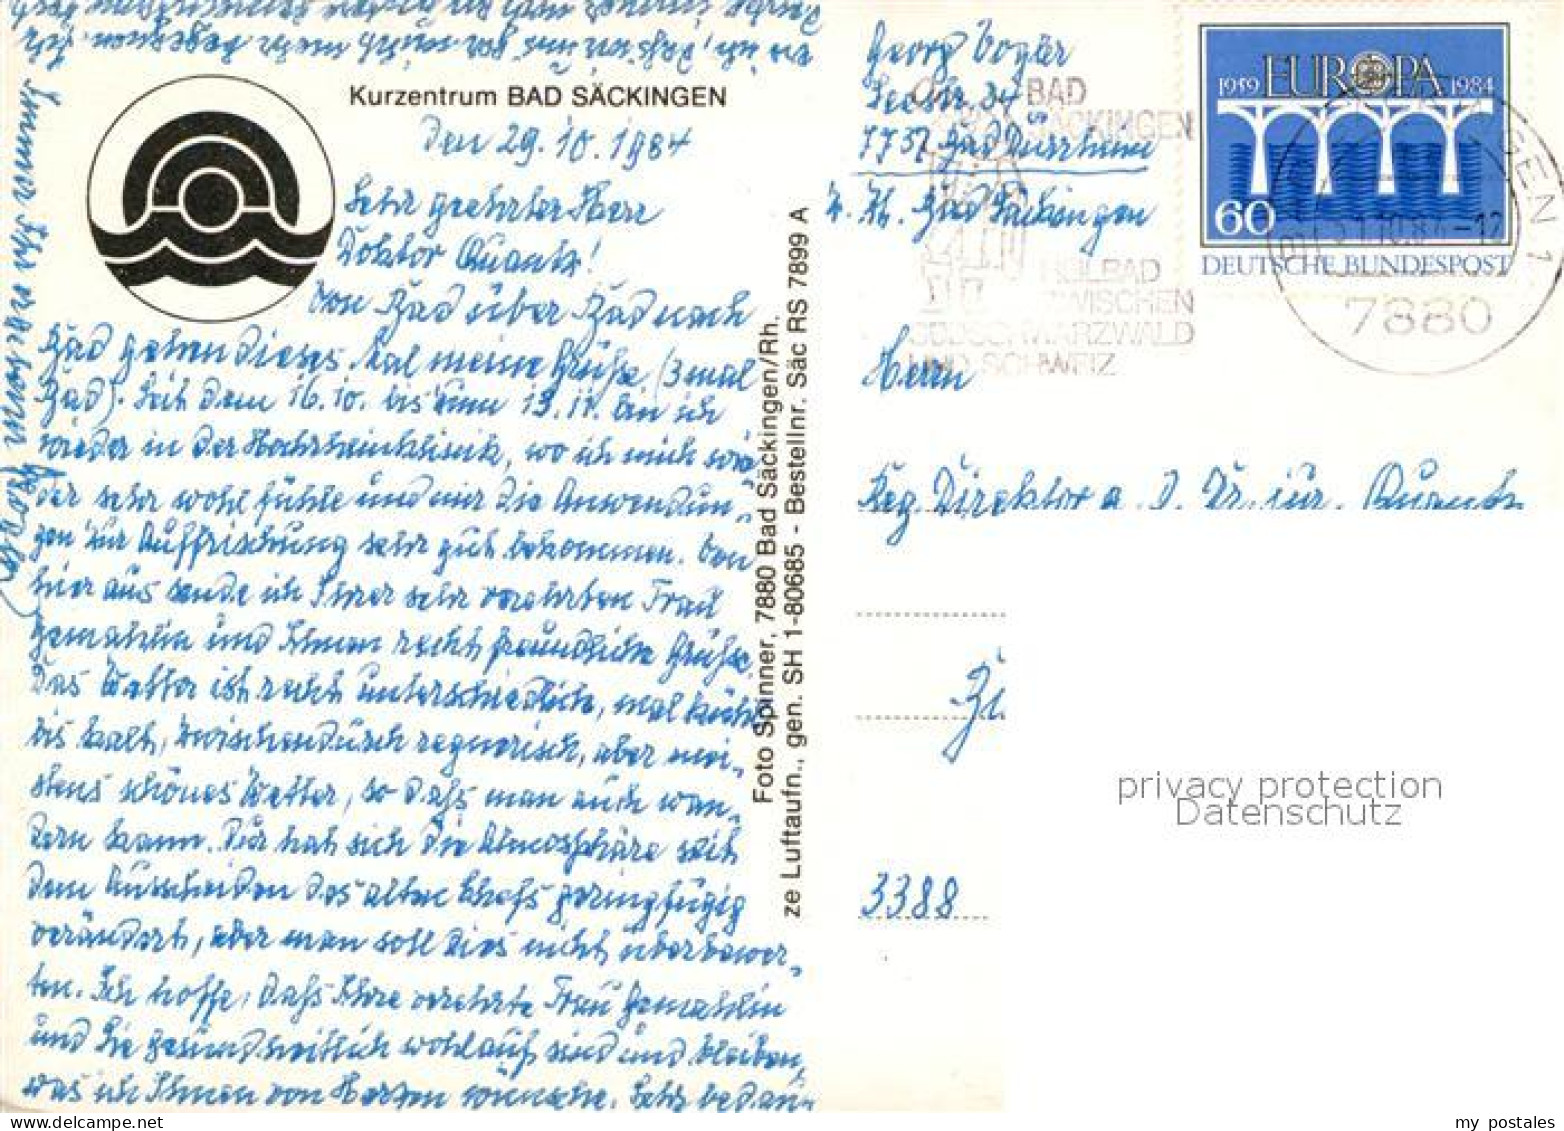 Kurzentrum BAD SÄCKINGEN
Den 29.10.1984
Sehr geehrter Herr
Doktor Quantz!
Von Bad über Bad nach
Bad gehen dieses Mal meine Grüße (3 mal
Bad). Seit dem 16.10. bis zum 13.11. bin ich
wieder in der Hochrheinklinik, wo ich mich wie-
der sehr wohl fühle und mir die Anwendun-
gen zur Auffrischung sehr gut bekommen. Von
hier aus sende ich Ihrer sehr verehrten Frau
Gemahlin und Ihnen recht freundliche Grüße.
Das Wetter ist recht unterschiedlich, mal kühl
bis kalt, zwischendurch regnerisch, aber mei-
stens schönes Wetter, so daß man auch wan-
dern kann. Zwar hat sich die Atmosphäre seit
dem Ausscheiden des alten Chefs geringfügig
verändert, aber man soll dies nicht überbewer-
ten. Ich hoffe, daß Ihre verehrte Frau Gemahlin
und Sie gesundheitlich wohlauf sind und bleiben,
was ich Ihnen von Herzen wünsche. Sehr bedau-
re ich, daß
Immer Ihr
Georg
Foto Spinner, 7880 Bad Säckingen/Rh.
ze Luftaufn., gen. SH 1-80685 - Bestellnr. Säc RS 7899 A
Georg Vogär
Seestr. 34
7737 Bad Dürrheim
z. Zt. Bad Säckingen
BAD
SÄCKINGEN
HEILBAD
ZWISCHEN
SÜDSCHWARZWALD
UND SCHWEIZ
1959 EUROPA 1984
60
DEUTSCHE BUNDESPOST
31.10.84-12
7880
Herrn
Reg. Direktor a. D. Dr. jur. Quantz
3388
privacy protection
Datenschutz
my postales